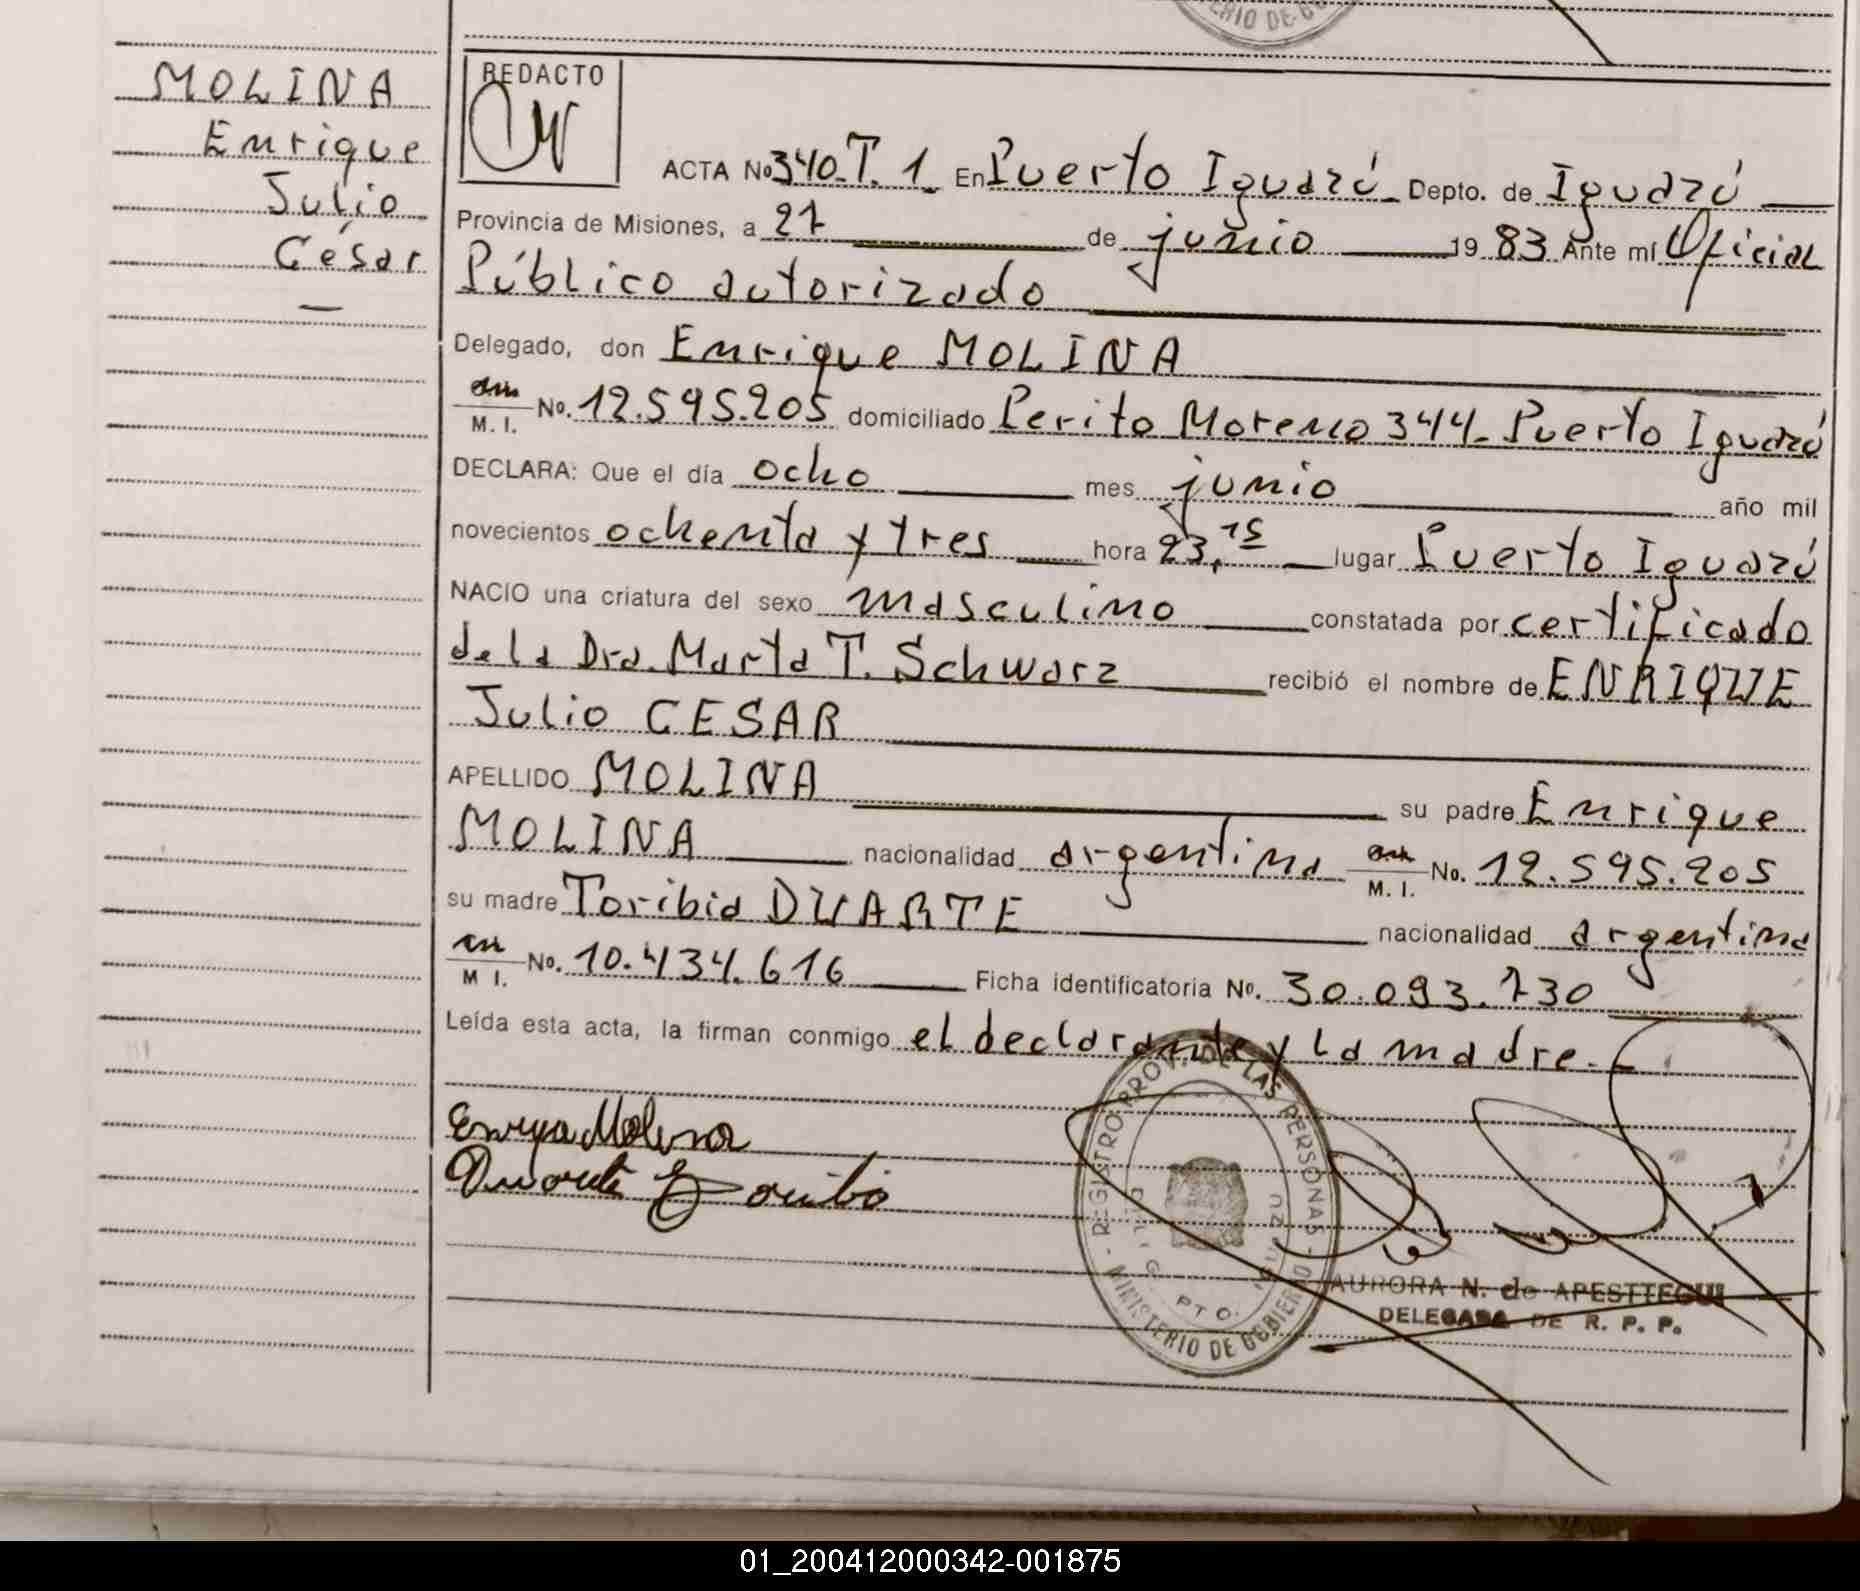 ERIO DE GO
MOLINA
Enrique
Julio
César
REDACTO
ACTA No 340. T. 1 En Puerto Iguazú Depto. de Iguazú
Provincia de Misiones, a 27 de junio 19 83 Ante mí Oficial
Público autorizado
Delegado, don Enrique MOLINA
M. I. No. 12.595.205 domiciliado Perito Moreno 344. Puerto Iguazú
DECLARA: Que el día ocho mes junio año mil
novecientos ochenta y tres hora 23,15 lugar Puerto Iguazú
NACIO una criatura del sexo masculino constatada por certificado
de la Dra. Marta T. Schwarz recibió el nombre de ENRIQUE
Julio CESAR
APELLIDO MOLINA su padre Enrique
MOLINA nacionalidad argentina M. I. No. 12.595.205
su madre Toribia DUARTE nacionalidad argentina
M I. No. 10.434.616 Ficha identificatoria No. 30.093.730
Leída esta acta, la firman conmigo el declarante y la madre.
REGISTRO PROV. DE LAS PERSONAS - MINISTERIO DE GOBIERNO
Molina
Duarte
AURORA N. de APESTTEGUI
DELEGADA DE R. P. P.
01_200412000342-001875